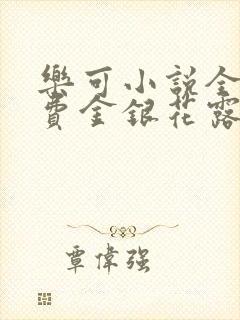 樂可小說全
費金銀花露
覃偉强